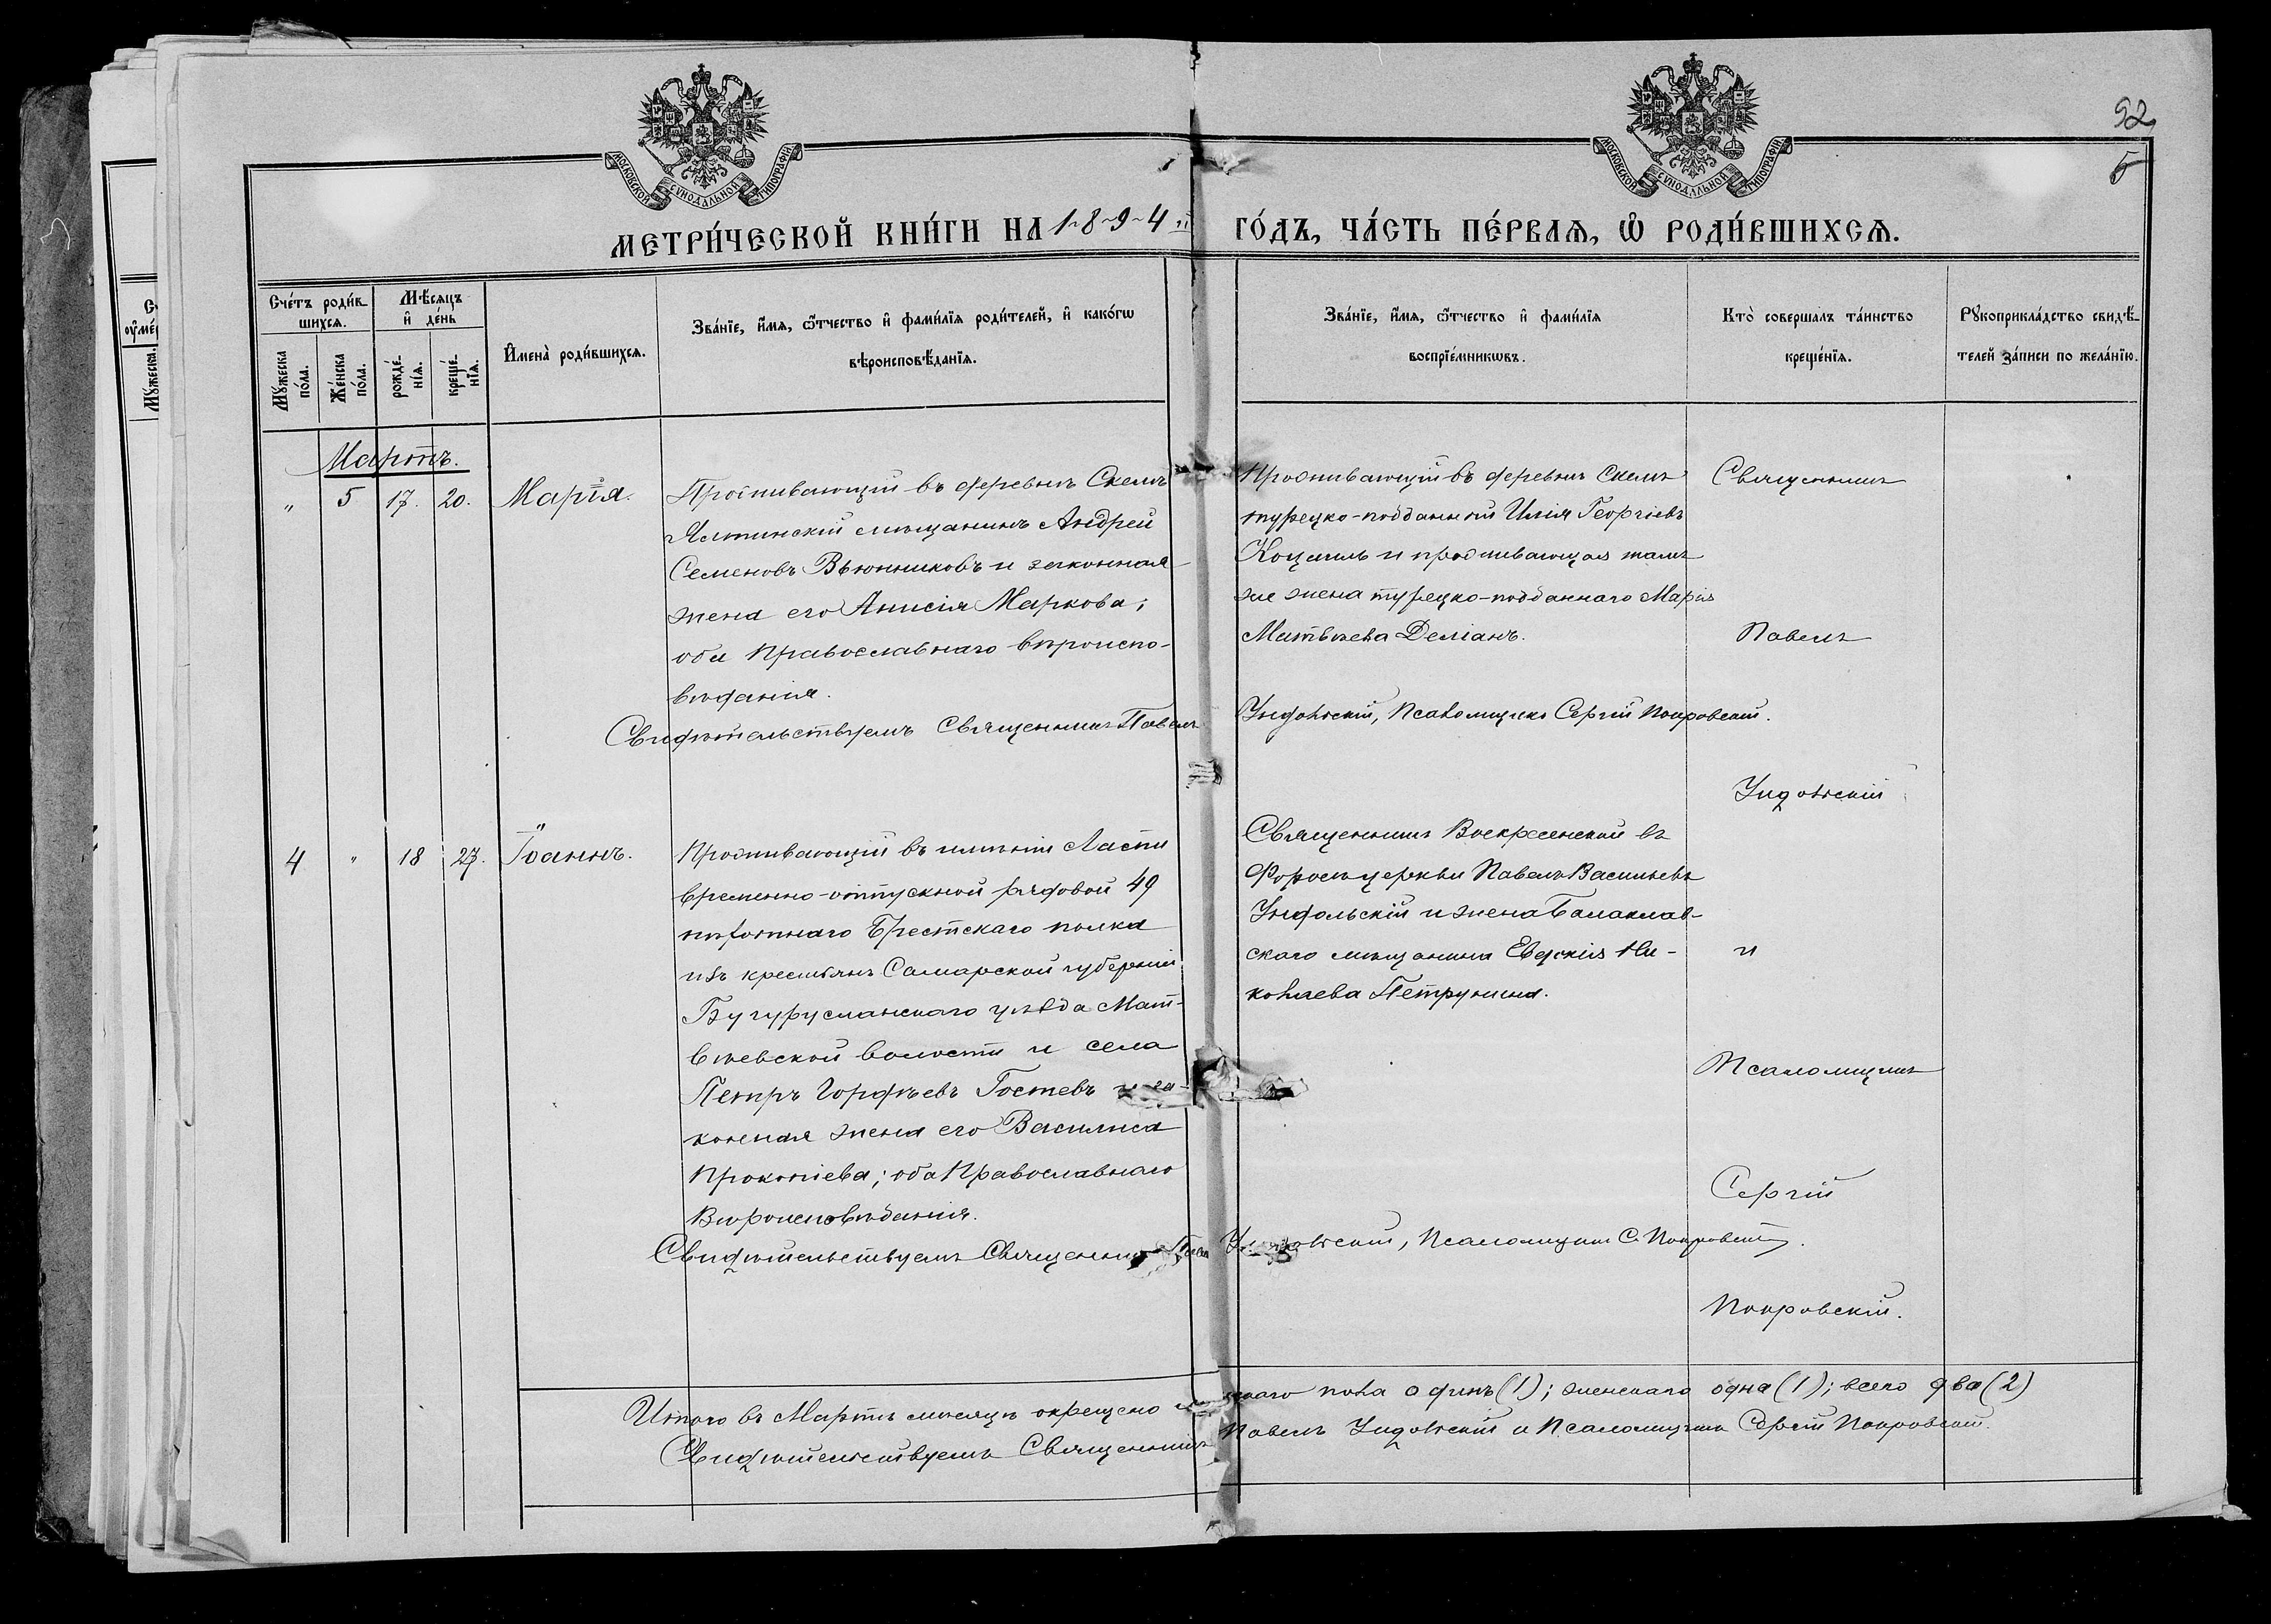 52
5
МОСКОВСКОЙ СѴНОДАЛЬНОЙ ТИПОГРАФІИ
МОСКОВСКОЙ СѴНОДАЛЬНОЙ ТИПОГРАФІИ
МЕТРИ́ЧЕСКОЙ КНИ́ГИ НА 1894 й ГО́ДЪ, ЧА́СТЬ ПЕ́РВАЯ, Ѽ РОДИ́ВШИХСЯ.
Сче́тъ роди́вшихся.
Мꙋ́жеска по́ла.
Же́нска по́ла.
Мѣ́сяцъ и҆ де́нь
рожде́нїѧ.
креще́нїѧ.
И҆мена̀ роди́вшихсѧ.
Зва́нїе, и҆́мѧ, ѻ҆́тчество и҆ фами́лїѧ роди́телей, и҆ како́гѡ
вѣроисповѣ́данїѧ.
Зва́нїе, и҆́мѧ, ѻ҆́тчество и҆ фами́лїѧ
воспрїе́мникѡвъ.
Кто̀ совершалъ та́инство
креще́нїѧ.
Рꙋкоприкла́дство свидѣ́-
телей за́писи по жела́нїю.
Мартъ.
" 5 17. 20. Марія.
Проживающій въ деревнѣ Скеля
Ялтинскій мѣщанинъ Андрей
Семеновъ Вьюнниковъ и законная
жена его Анисія Маркова;
оба Православнаго вѣроиспо-
вѣданія.
Проживающій въ деревнѣ Скеля
турецко-подданный Илія Георгіевъ
и проживающая тамъ
же жена турецко-подданнаго Марія
Матвѣева Деліанъ.
Священникъ
Павелъ
Ундольскій
и
Псаломщикъ
Сергій
Покровскій.
Свидѣтельствуемъ Священникъ Павелъ Ундольскій, Псаломщикъ Сергій Покровскій.
4 " 18 27. Іоаннъ.
Проживающій въ имѣніи Ласпи
временно-отпускной рядовой 49
пѣхотнаго Брестскаго полка
изъ крестьянъ Самарской губерніи
Бугурусланскаго уѣзда Мат-
вѣевской волости и села
Петръ Гордѣевъ Гостевъ и за-
конная жена его Василиса
Прокопіева; оба Православнаго
Вѣроисповѣданія.
Священникъ Воскресенской въ
Форосѣ церкви Павелъ Васильевъ
Ундольскій и жена Балаклав-
скаго мѣщанина Евдокія Ни-
колаева Петрунина.
Свидѣтельствуемъ Священникъ Павелъ Ундольскій, Псаломщикъ С. Покровскій.
Итого въ Мартѣ мѣсяцѣ окрещено мужскаго пола одинъ (1); женскаго одна (1); всего два (2)
Свидѣтельствуемъ Священникъ Павелъ Ундольскій и Псаломщикъ Сергій Покровскій.